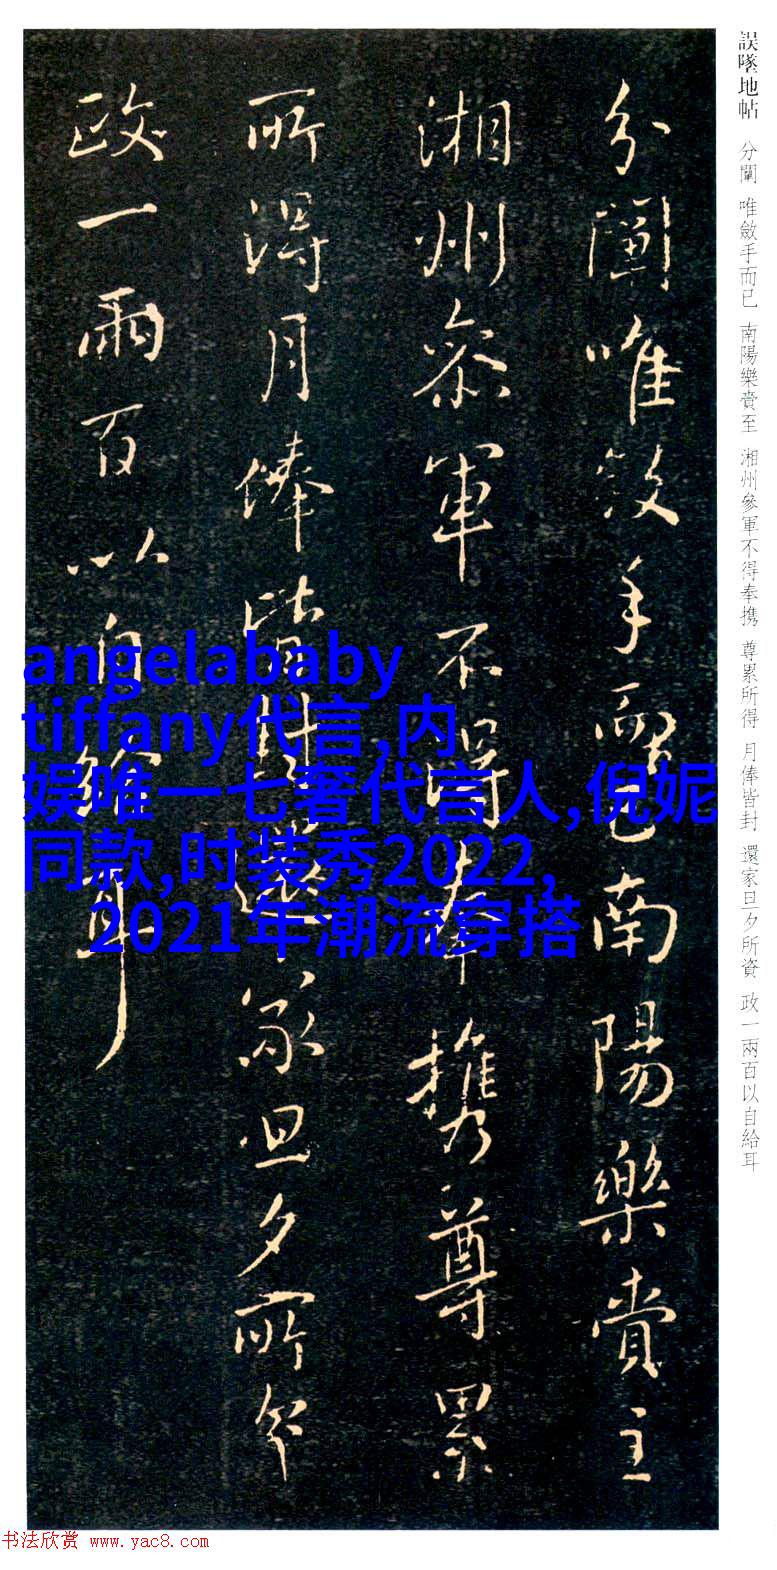 誤墜地帖 分闈 唯斂手而已 南陽樂賚至 湘州參軍不得奉携 尊累所得 月俸皆封 還家旦夕所資 政一兩百以自給耳
分闈唯斂手而已南陽樂
湘州參軍不得奉携尊累
所得月俸皆封還家旦夕所
政一兩百以自給耳
angelababy
tiffany代言,内
娱唯一七奢代言人,倪妮
同款,时装秀2022,
2021年潮流穿搭
书法欣赏 www.yac8.com